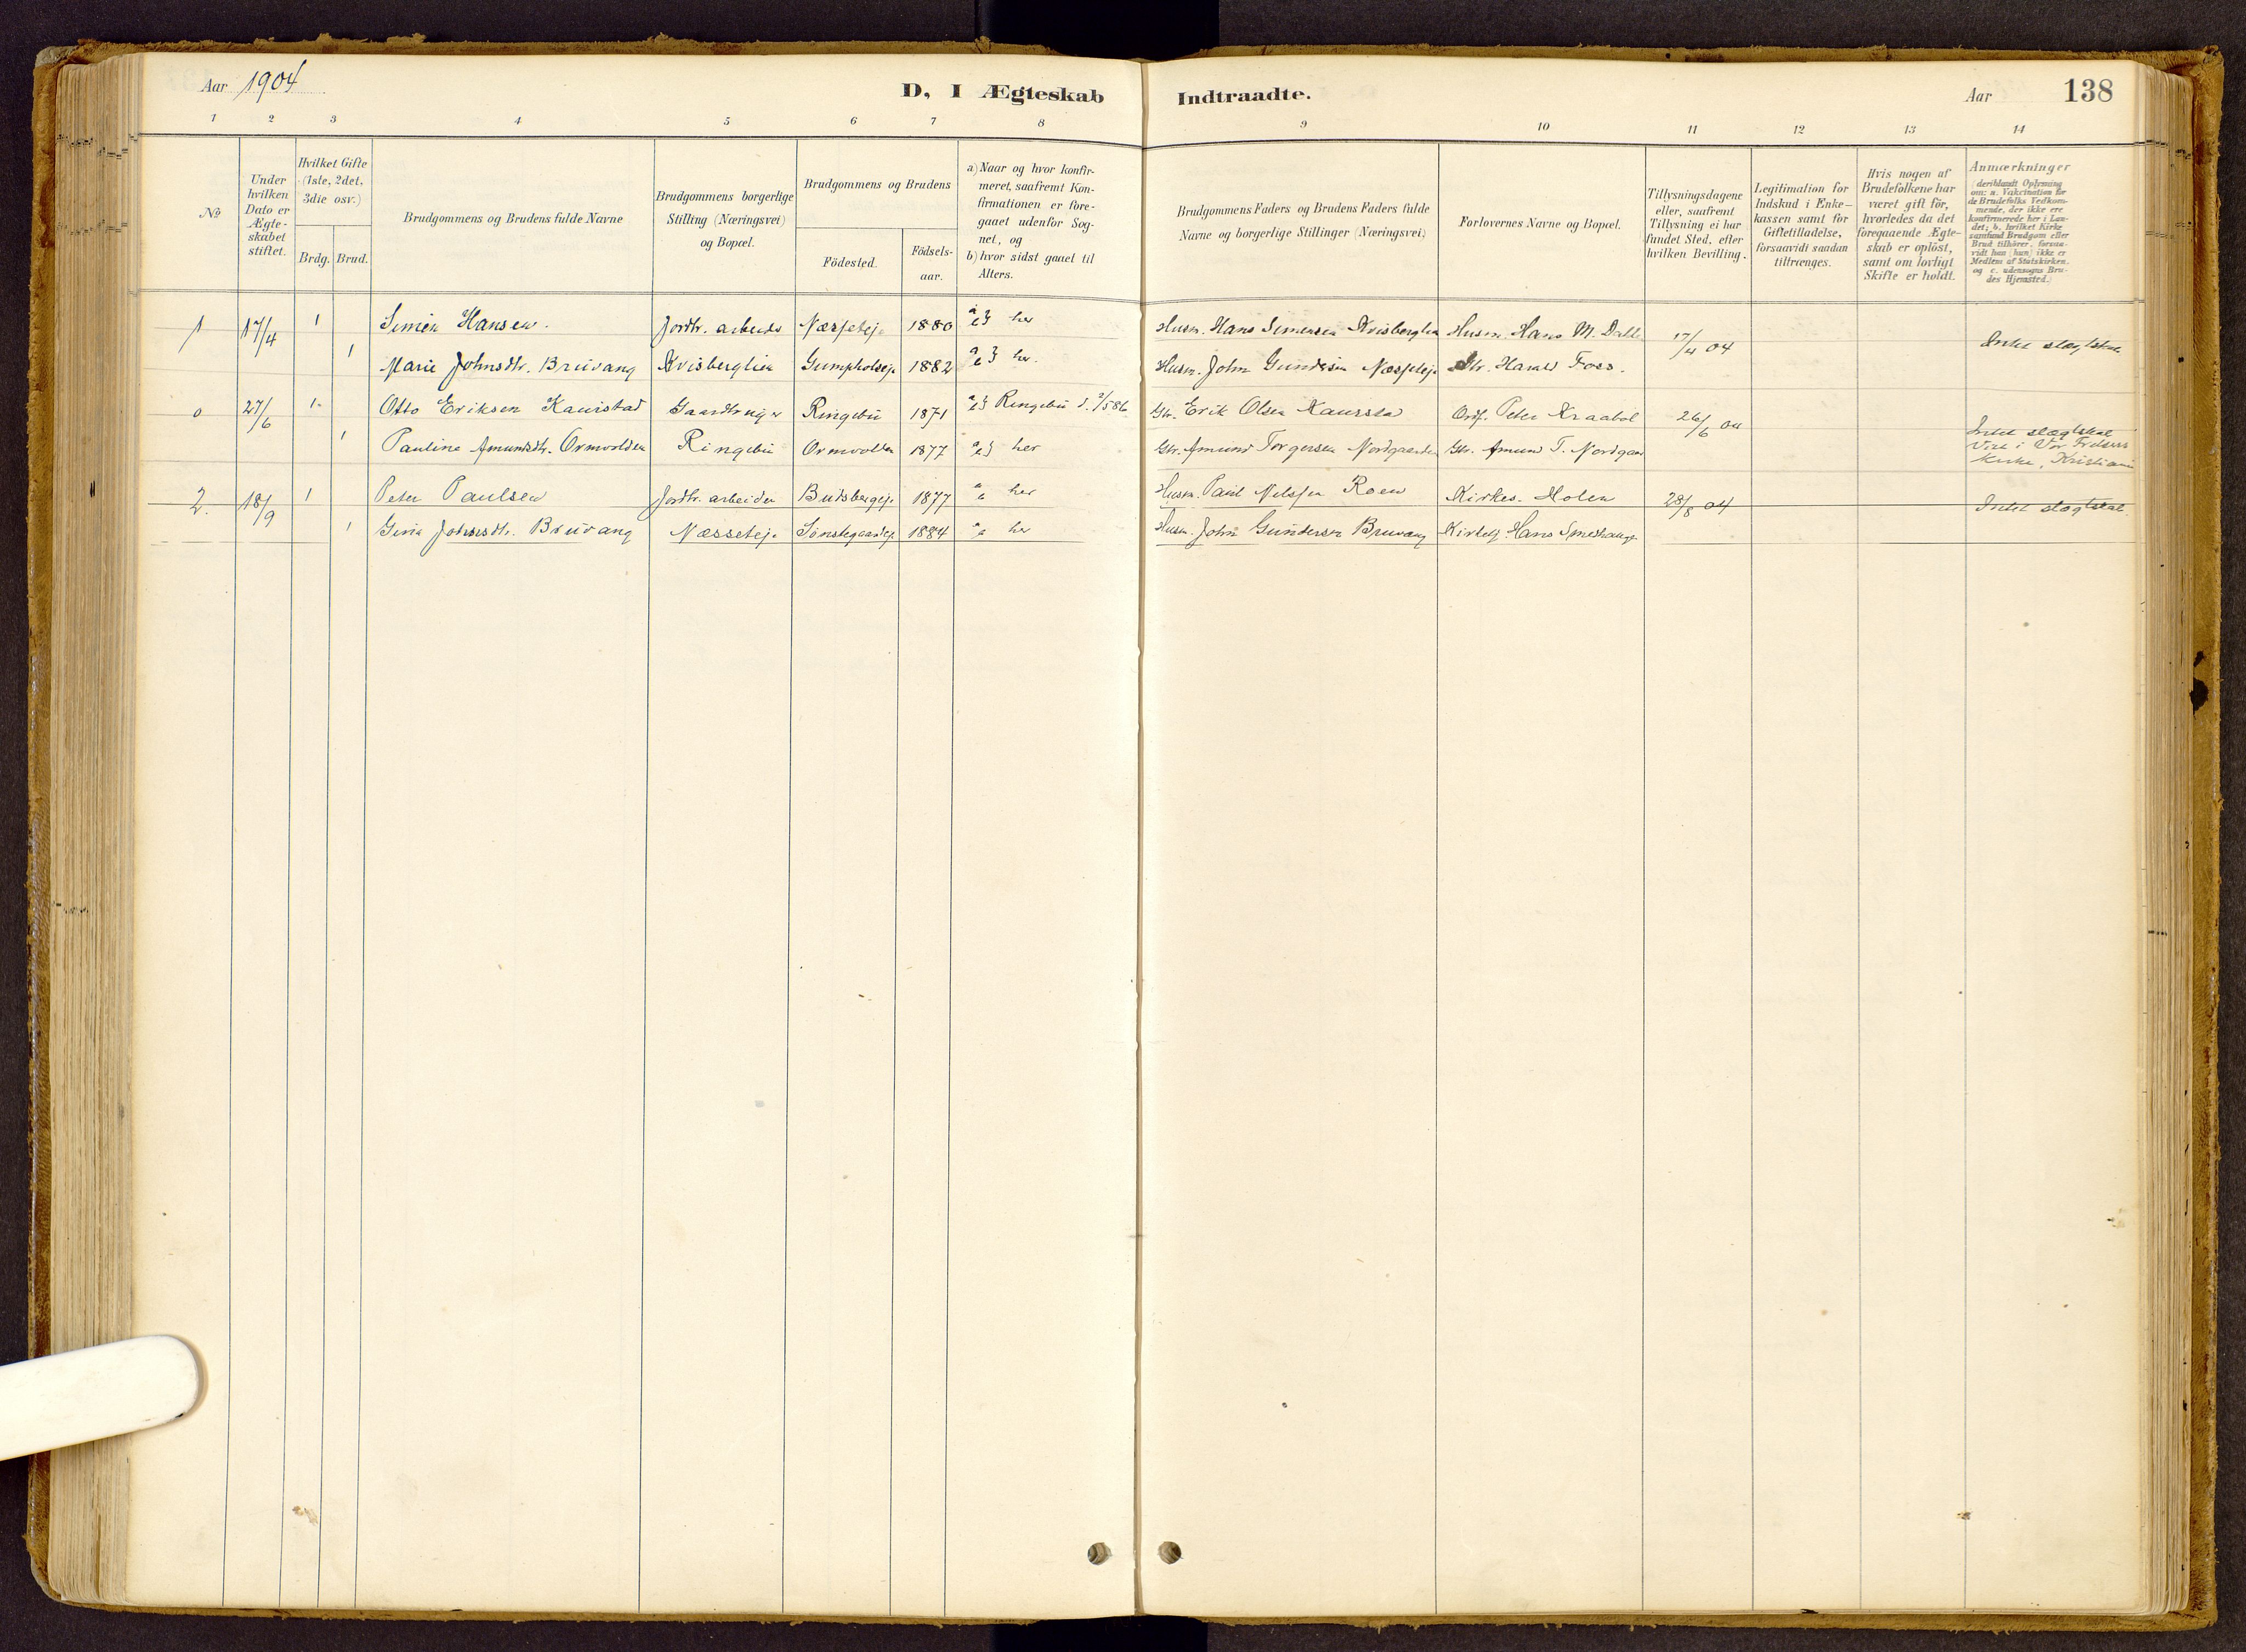 Aar 1904
D, I Ægteskab Indtraadte.
Aar 138
1 2 3 4 5 6 7 8 9 10 11 12 13 14
No
Under hvilken Dato er Ægte-skabet stiftet.
Hvilket Gifte (1ste, 2det, 3die osv.)
Brdg. Brud.
Brudgommens og Brudens fulde Navne
Brudgommens borgerlige Stilling (Næringsvei) og Bopæl.
Brudgommens og Brudens
Födested.
Födsels-aar.
a) Naar og hvor konfir-meret, saafremt Kon-firmationen er fore-gaaet udenfor Sog-net, og
b) hvor sidst gaaet til Alters.
Brudgommens Faders og Brudens Faders fulde Navne og borgerlige Stillinger (Næringsvei)
Forlovernes Navne og Bopæl.
Tillysningsdagene eller, saafremt Tillysning ei har fundet Sted, efter hvilken Bevilling.
Legitimation for Indskud i Enke-kassen samt for Giftetilladelse, forsaavidt saadan tiltrænges.
Hvis nogen af Brudefolkene har været gift för, hvorledes da det foregaaende Ægte-skab er oplöst, samt om lovligt Skifte er holdt.
Anmærkninger (deriblandt Oplysning om: a. Vakcination for de Brudefolks Vedkom-mende, der ikke ere konfirmerede her i Lan-det; b. hvilket Kirke-samfund Brudgom eller Brud tilhörer, forsaa-vidt han (hun) ikke er Medlem af Statskirken, og c. udensogns Bru-des Hjemsted.)
1 17/4 1 Simen Hansen. Jordbr. arbeider Næsseteje 1880 a b} her Husm. Hans Simensen Kvisberglien Husm. Hans M. Dahle 17/4 04 Intet slægtskab
1 Marie Johnsdtr. Bruvang Kvisberglien Gumpholseje 1882 a b} her. Husm. John Gundersen Næsseteje Gbr. Harald Foss.
0 27/6 1 Otto Eriksen Kaurstad Gaardbruger Ringebu 1871 a b} Ringebu d. 2/5 86 Gbr. Erik Olsen Kaurstad Ordf. Peter Kraabøl 26/6 04 Intet slægtskab
1 Pauline Amundsdtr. Ormvolden Ringebu Ormvolden 1877 a b} her Gbr. Amund Torgersen Nordgaarden Gbr. Amund T. Nordgaard Viet i Vor Frelsers Kirke, Kristiania
2. 18/9 1 Peter Paulsen Jordbr. arbeider Budsbergeje 1877 a b her Husm. Paul Nilssen Roen Kirkes. Holen 28/8 04 Intet slægtskab.
1 Gina Johnsdtr. Bruvang Næsseteje Sönstegaardeje 1884 a b her Husm. John Gundersen Bruvang Kirketj. Hans Smeshaugen